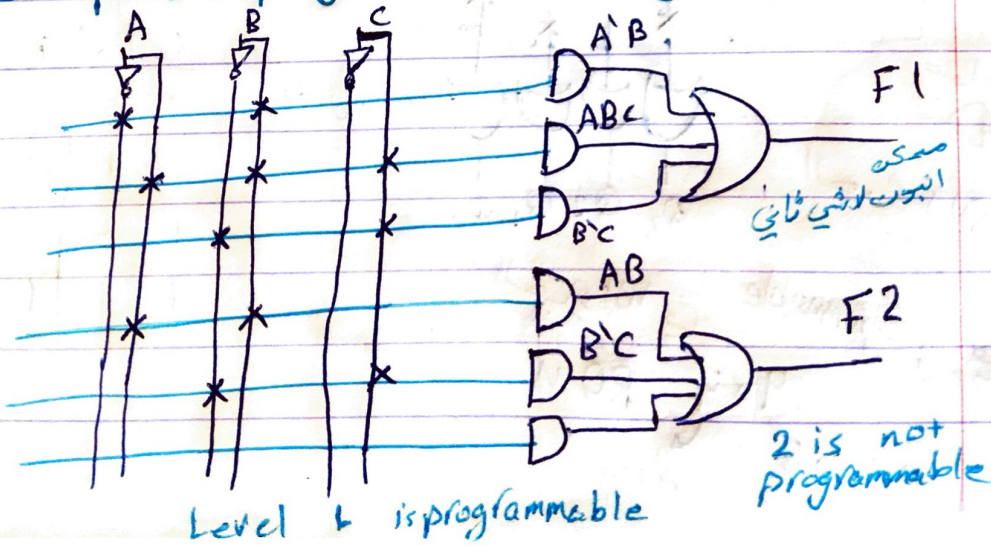 A B C
A`B
F1
ABC
ممكن
انبوت لاشي ثاني
B`C
AB
F2
B`C
2 is not
programmable
Level 1 is programmable